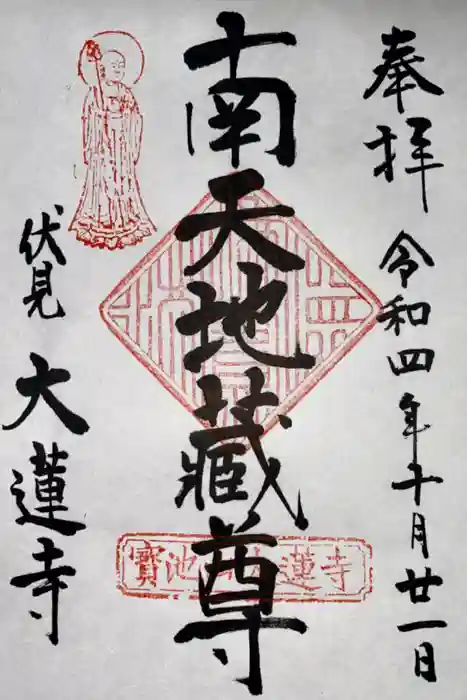 奉拝 令和四年十月廿一日
南天地蔵尊
伏見 大蓮寺
寳池山大蓮寺